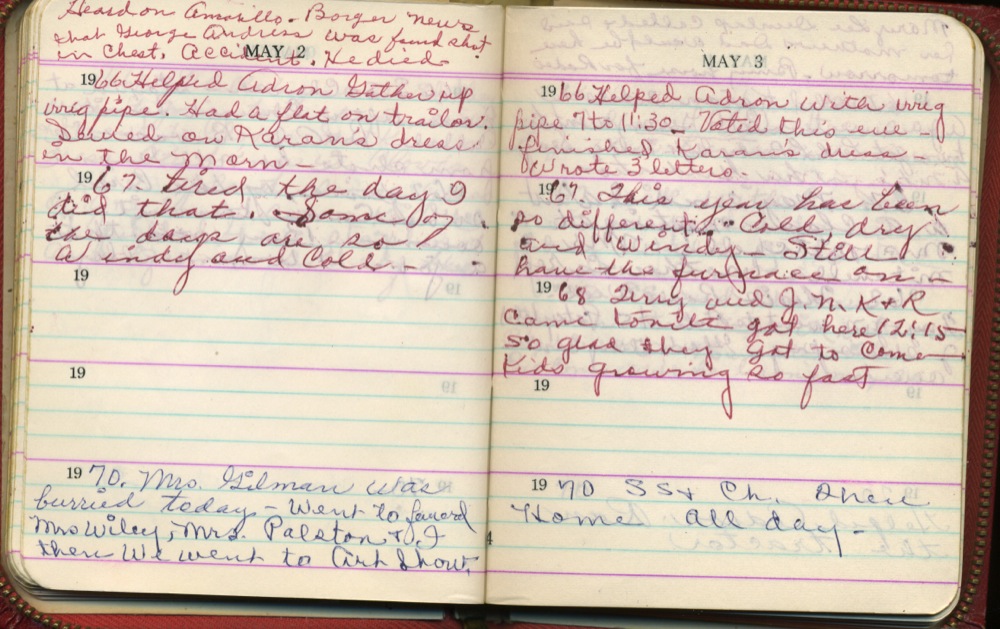 Heard on Amarillo-Borger news
that George Andress was found shot
in chest, Accident. He died
MAY 2
1966 Helped Adron Gather up
irrig pipe. Had a flat on trailor.
Sewed on Karan's dress
in the Morn -
1967. Tired the day I
did that. Some of
the days are so
Windy and Cold -
19
19
1970. Mrs. Gilman was
burried today - Went to
Mrs Wiley, Mrs. Palston, & I
then We went to Art Show.
MAY 3
1966 Helped Adron with irrig
pipe 7 to 11:30 - Voted this eve -
finished Karan's dress -
Wrote 3 letters.
1967. This year has been
so different. Cold, dry
and Windy - Still
have the furnace on -
1968 Terry and J.N. K & R
came tonite got here 12:15
so glad they got to come
Kids growing so fast
19
1970 SS & Ch.
Home all day -
4